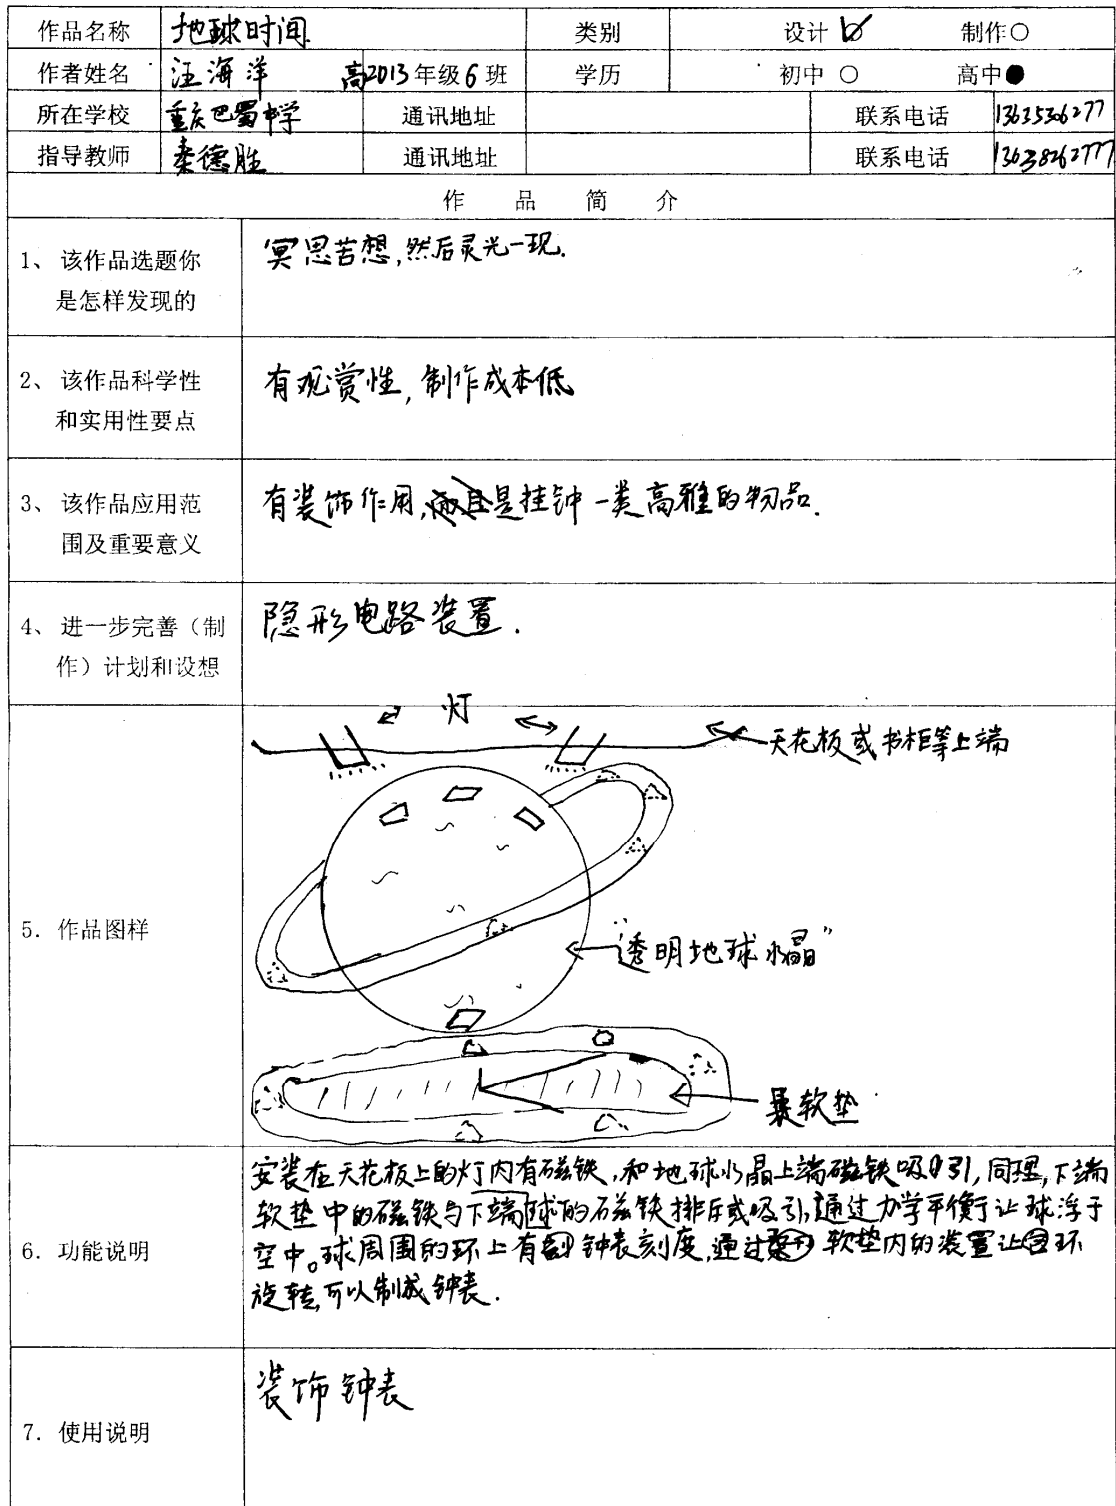 作品名称 地球时间 类别 设计 制作○
作者姓名 汪海洋 高2013年级6班 学历 初中 ○ 高中●
所在学校 重庆巴蜀中学 通讯地址 联系电话
指导教师 秦德胜 通讯地址 联系电话 13638262777
作 品 简 介
1、 该作品选题你
是怎样发现的
冥思苦想,然后灵光一现.
2、 该作品科学性
和实用性要点
有观赏性,制作成本低
3、 该作品应用范
围及重要意义
有装饰作用,是挂钟一类高雅的物品.
4、 进一步完善（制
作）计划和设想
隐形电路装置.
5. 作品图样
灯
天花板或书柜等上端
"透明地球水晶"
软垫
6. 功能说明
安装在天花板上的灯内有磁铁,和地球水晶上端磁铁吸引,同理,下端
软垫中的磁铁与下端球的磁铁排斥或吸引,通过力学平衡让球浮于
空中。球周围的环上有钟表刻度,通过软垫内的装置让环
旋转,可以制成钟表.
7. 使用说明
装饰钟表